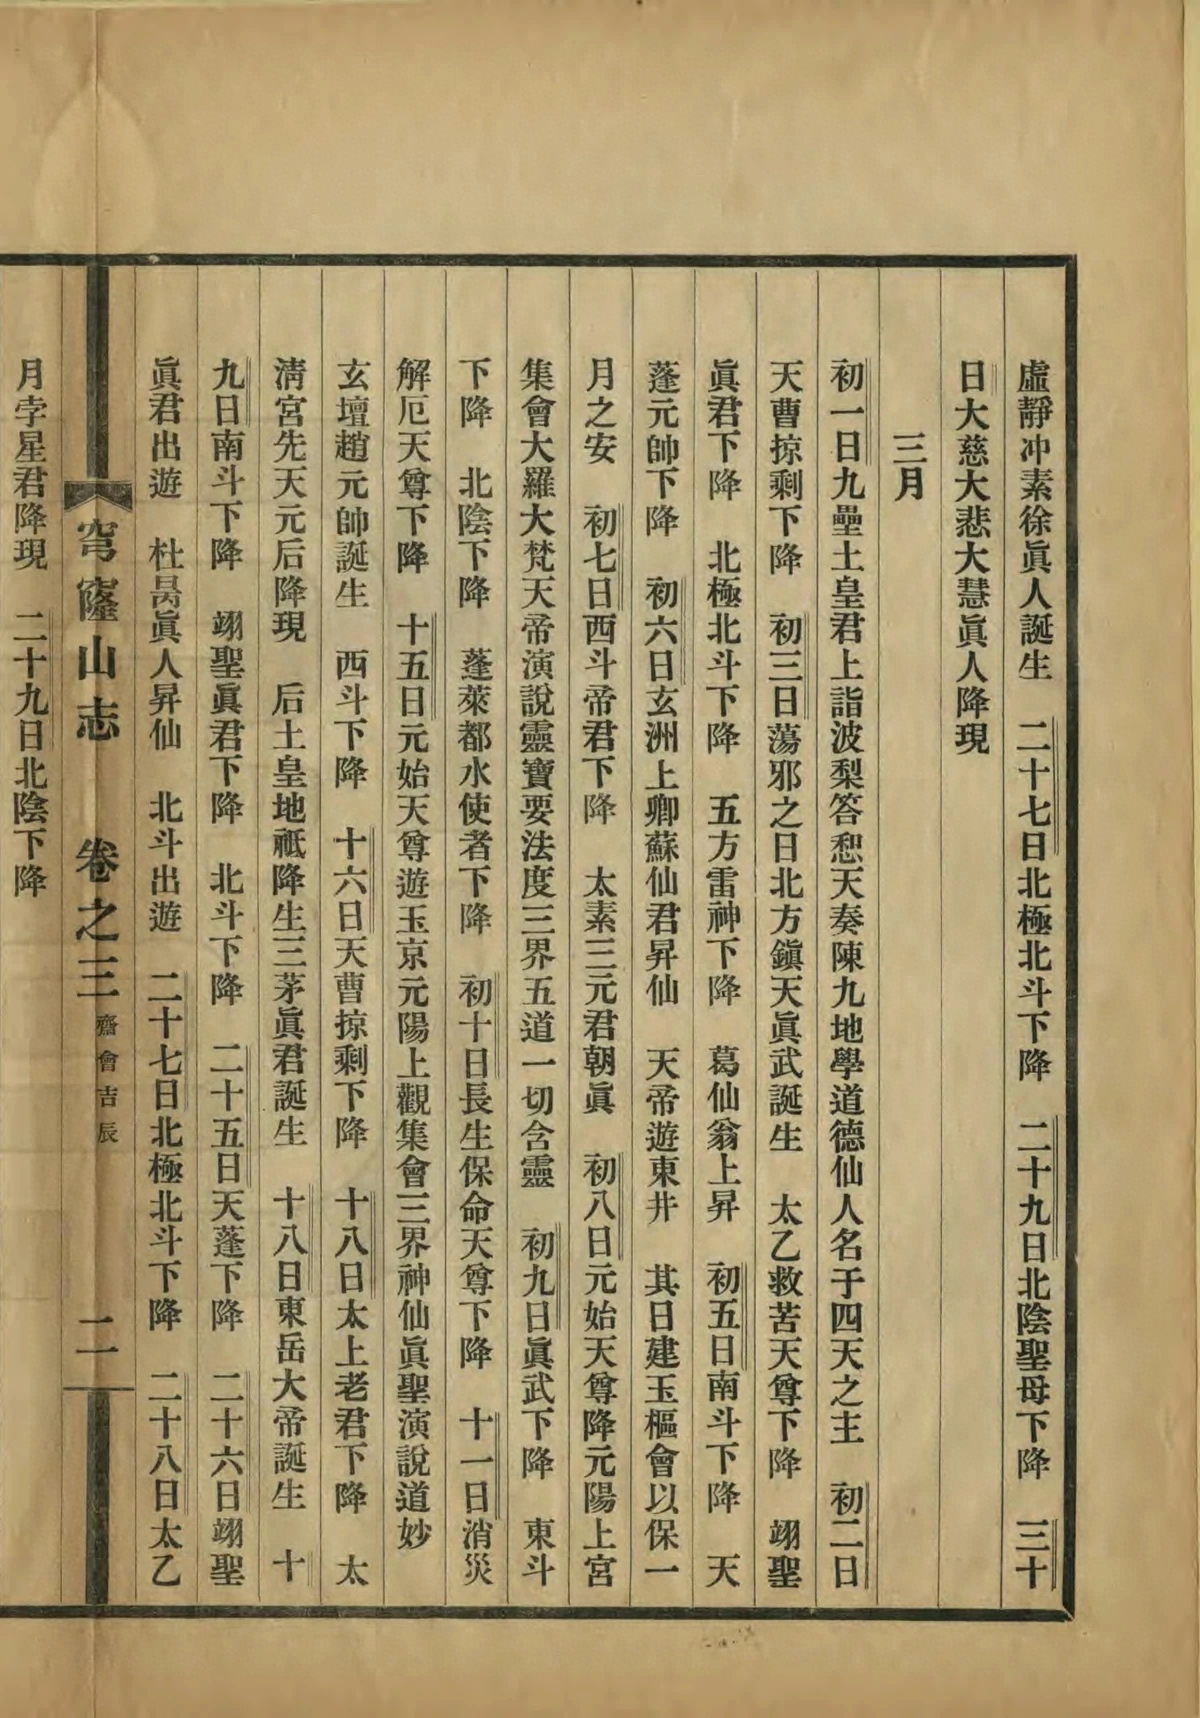 虛靜冲素徐眞人誕生　二十七日北極北斗下降　二十九日北陰聖母下降　三十
日大慈大悲大慧眞人降現
三月
初一日九壘土皇君上詣波梨答惒天奏陳九地學道德仙人名于四天之主　初二日
天曹掠剩下降　初三日蕩邪之日北方鎭天眞武誕生　太乙救苦天尊下降　翊聖
眞君下降　北極北斗下降　五方雷神下降　葛仙翁上昇　初五日南斗下降　天
蓬元帥下降　初六日玄洲上卿蘇仙君昇仙　天帝遊東井　其日建玉樞會以保一
月之安　初七日西斗帝君下降　太素三元君朝眞　初八日元始天尊降元陽上宮
集會大羅大梵天帝演說靈寶要法度三界五道一切含靈　初九日眞武下降　東斗
下降　北陰下降　蓬萊都水使者下降　初十日長生保命天尊下降　十一日消災
解厄天尊下降　十五日元始天尊遊玉京元陽上觀集會三界神仙眞聖演說道妙
玄壇趙元帥誕生　西斗下降　十六日天曹掠剩下降　十八日太上老君下降　太
淸宮先天元后降現　后土皇地祗降生三茅眞君誕生　十八日東岳大帝誕生　十
九日南斗下降　翊聖眞君下降　北斗下降　二十五日天蓬下降　二十六日翊聖
眞君出遊　杜昺眞人昇仙　北斗出遊　二十七日北極北斗下降　二十八日太乙
穹窿山志　卷之三 齋會吉辰　二
月孛星君降現　二十九日北陰下降